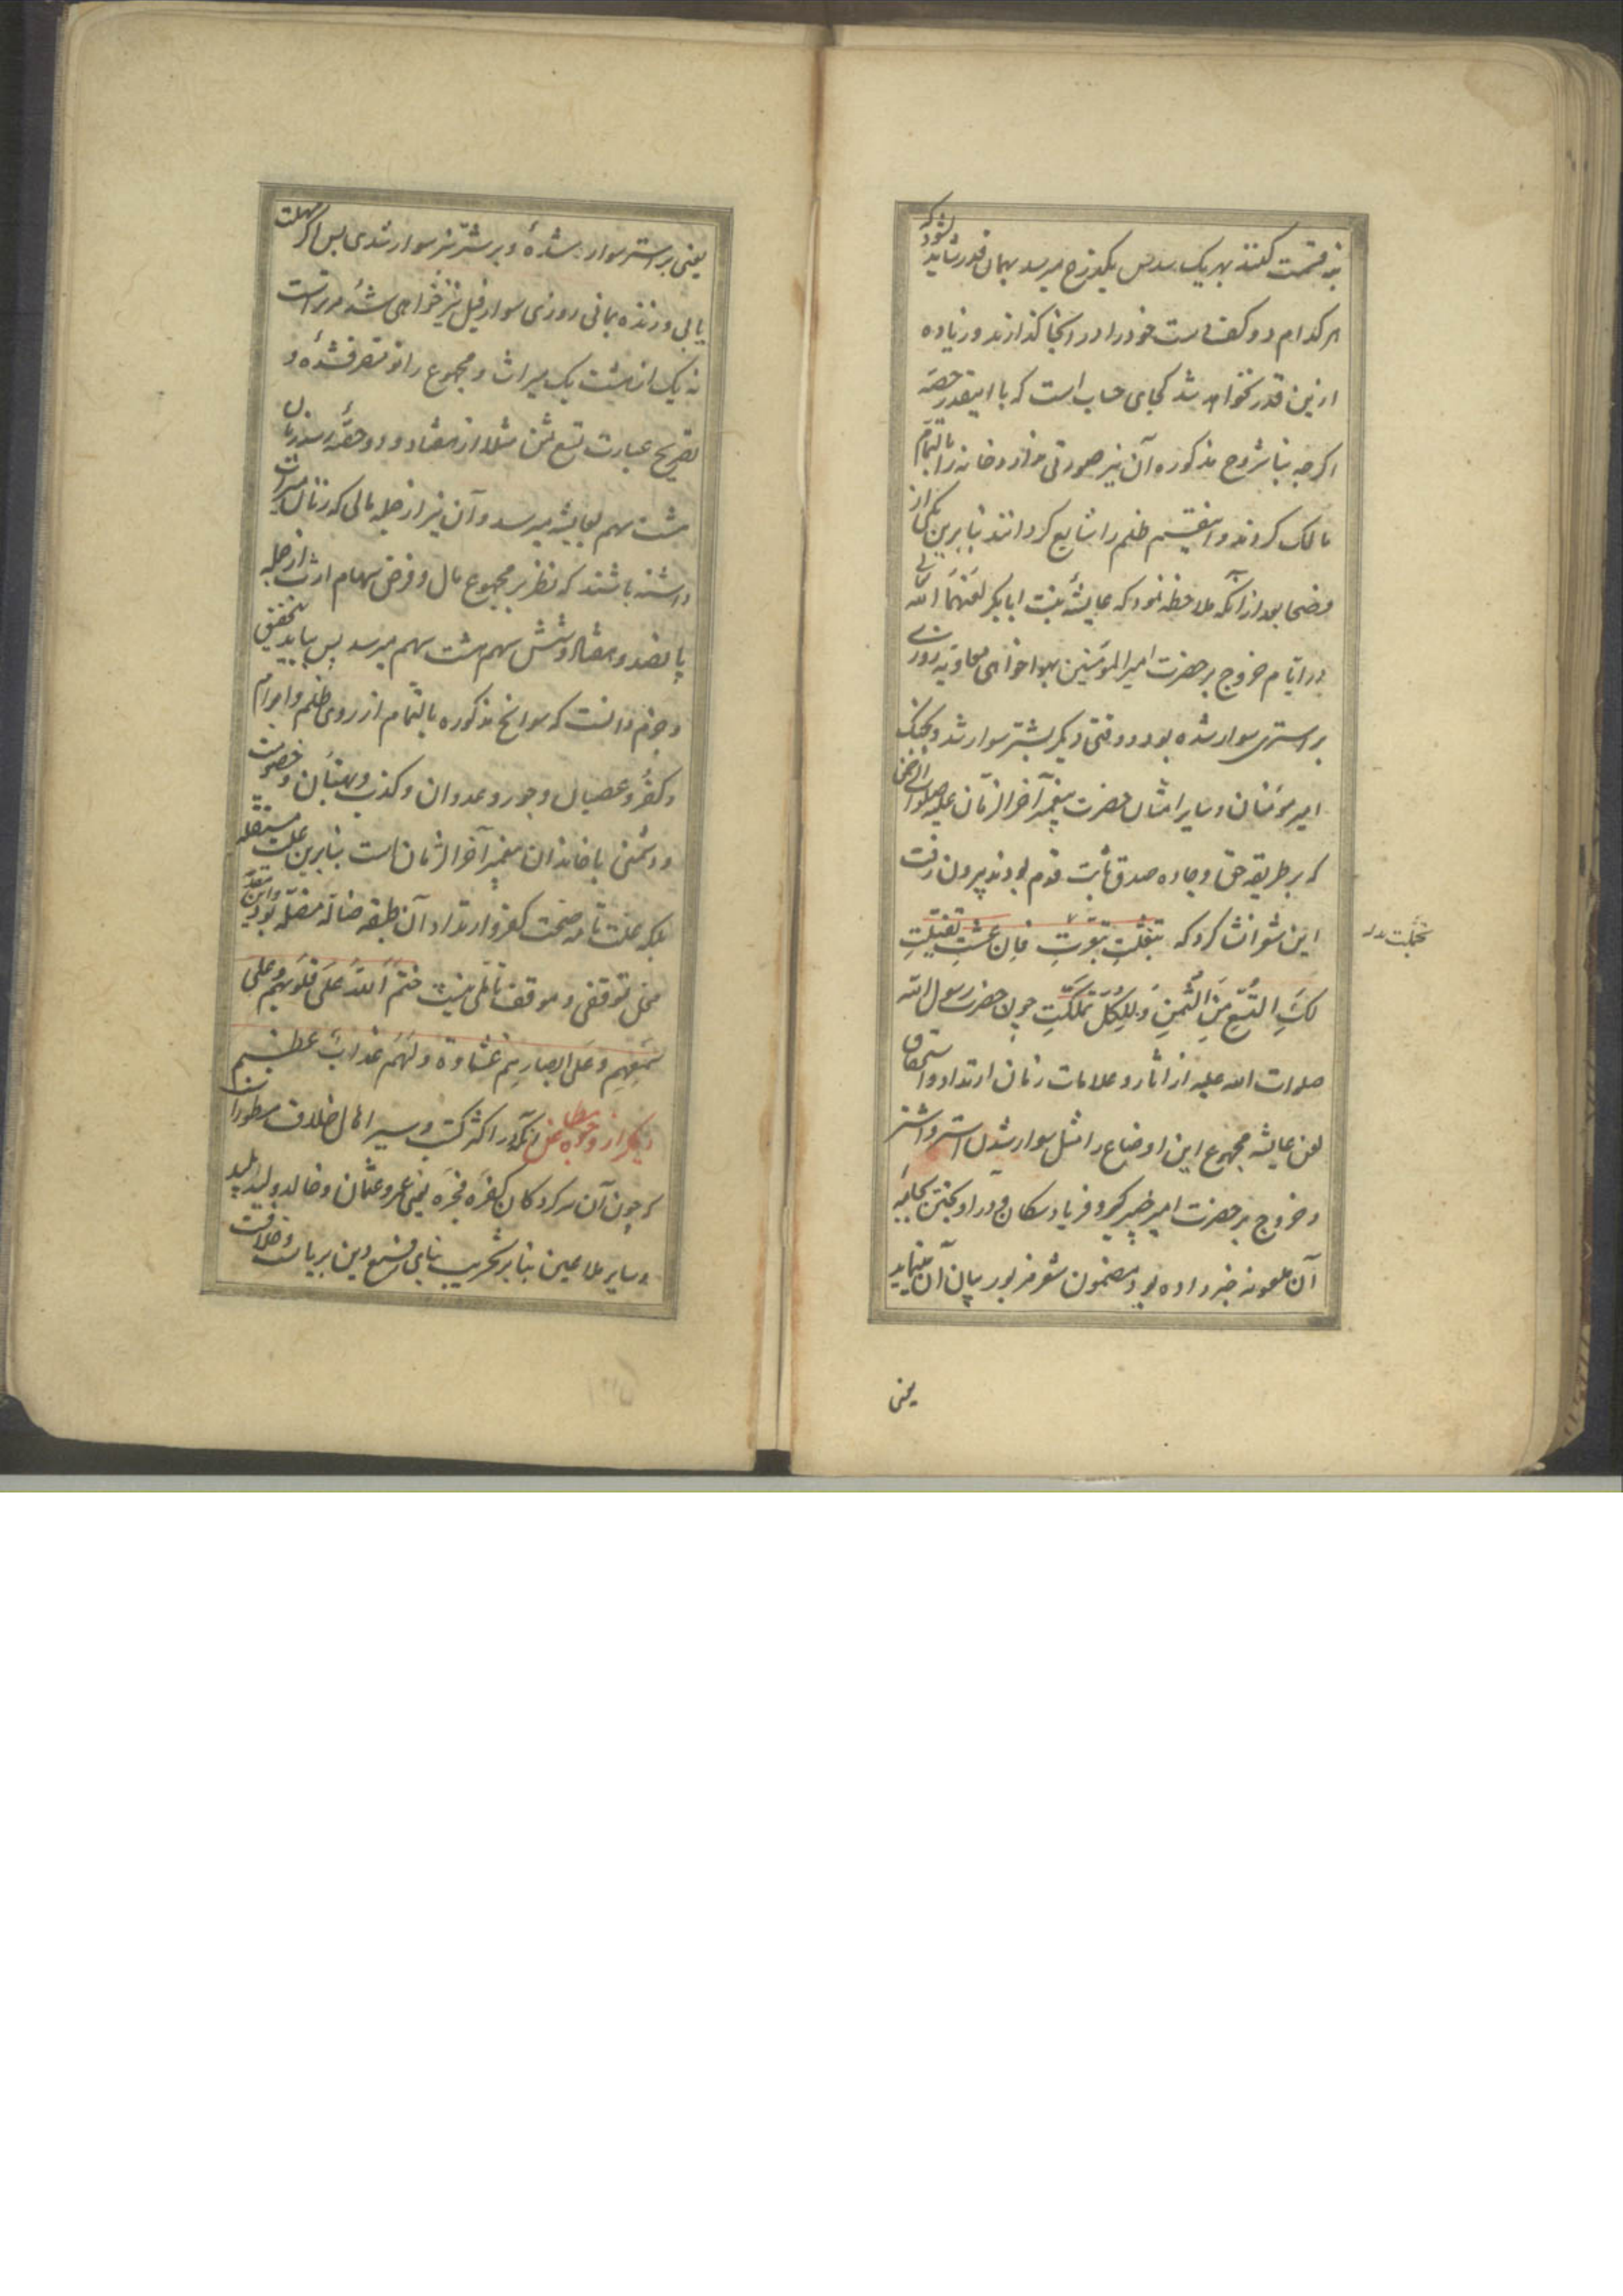 نه قسمت کنند بهر یک سدس یکذرع میرسد بهمان قدر شاید بشود که
هر کدام دو کف دست خود را در آنجا گذارند و زیاده
ازین قدر نخواهد شد کجای حساب است که با اینقدر حصه
اگرچه بنا بشروح مذکوره آن نیز صورتی ندارد خانه را بالتمام
مالک گردند و اینقسم ظلم را شایع گردانند بنابرین یکی از
فضحا بعد از آنکه ملاحظه نمود که عایشه بنت ابابکر لعنهما الله تعالی
در ایام خروج بر حضرت امیر المؤمنین بهواخواهی معاویه روزی
بر استری سوار شده بود و وقتی دیگر بشتر سوار شد و بجنگ
امیر مؤمنان و سایر امثال حضرت پیغمبر آخر الزمان علیه صلوات الرحمن
که بر طریقه حق و جاده صدق ثابت قدم بودند بیرون رفت
این شعر انشا کرد که تبغلت تبعرت فان عشت تفیلت
لک التسع من الثمن و بالکل تملکت چه حضرت رسول الله
صلوات الله علیه از اثار و علامات زنان ارتداد و استحقاق
لعن عایشه مجموع این اوضاع را مثل سوار شدن استر و اشتر
و خروج بر حضرت امیر خیبر گیر و فریاد سگان و در آویختن بجامه
آن ملعونه خبر داده بود و مضمون شعر مزبور بیان آن مینماید
یعنی
تجملت
یعنی بر استر سوار شدهٔ و بر شتر نیز سوار شدی پس اگر مهلت
یابی و زنده بمانی روزی سوار فیل نیز خواهی شد مر تراست
نه یک از هشت یک میراث و مجموع را تو متصرف شدهٔ و
تصریح عبارت تسع ثمن مثلا از هفتاد و دو حصه زنان
هشت سهم بعایشه میرسد و آن نیز از جمله مالی که زنان میراث
داشته باشند که نظر بر مجموع مال و فرض سهام ارث از جمله
پانصد و هفتاد و شش سهم هشت سهم میرسد پس بباید تحقیق
و جزم دانست که سوانح مذکوره بالتمام از روی ظلم و ابرام
و کفر و عصیان و جور و عدوان و کذب و بهتان و خصومت
و دشمنی با خاندان پیغمبر آخر الزمان است بنابرین علت مستقله
بلکه علت تامه صحت کفر و ارتداد آن طبقه ضاله مضله بود و این مقدمه
محل توقفی و موقف تأملی نیست ختم الله علی قلوبهم و علی
سمعهم و علی ابصارهم غشاوة و لهم عذاب عظیم
دیگر از وجوه مطاعن آنکه در اکثر کتب و سیر اهل خلاف مسطور است
که چون آن سرکردگان کفره فجره یعنی عمر و عثمان و خالد ولید پلید
و سایر ملاعین بنابر تخریب بنای شرع و دین بریاست و خلافت